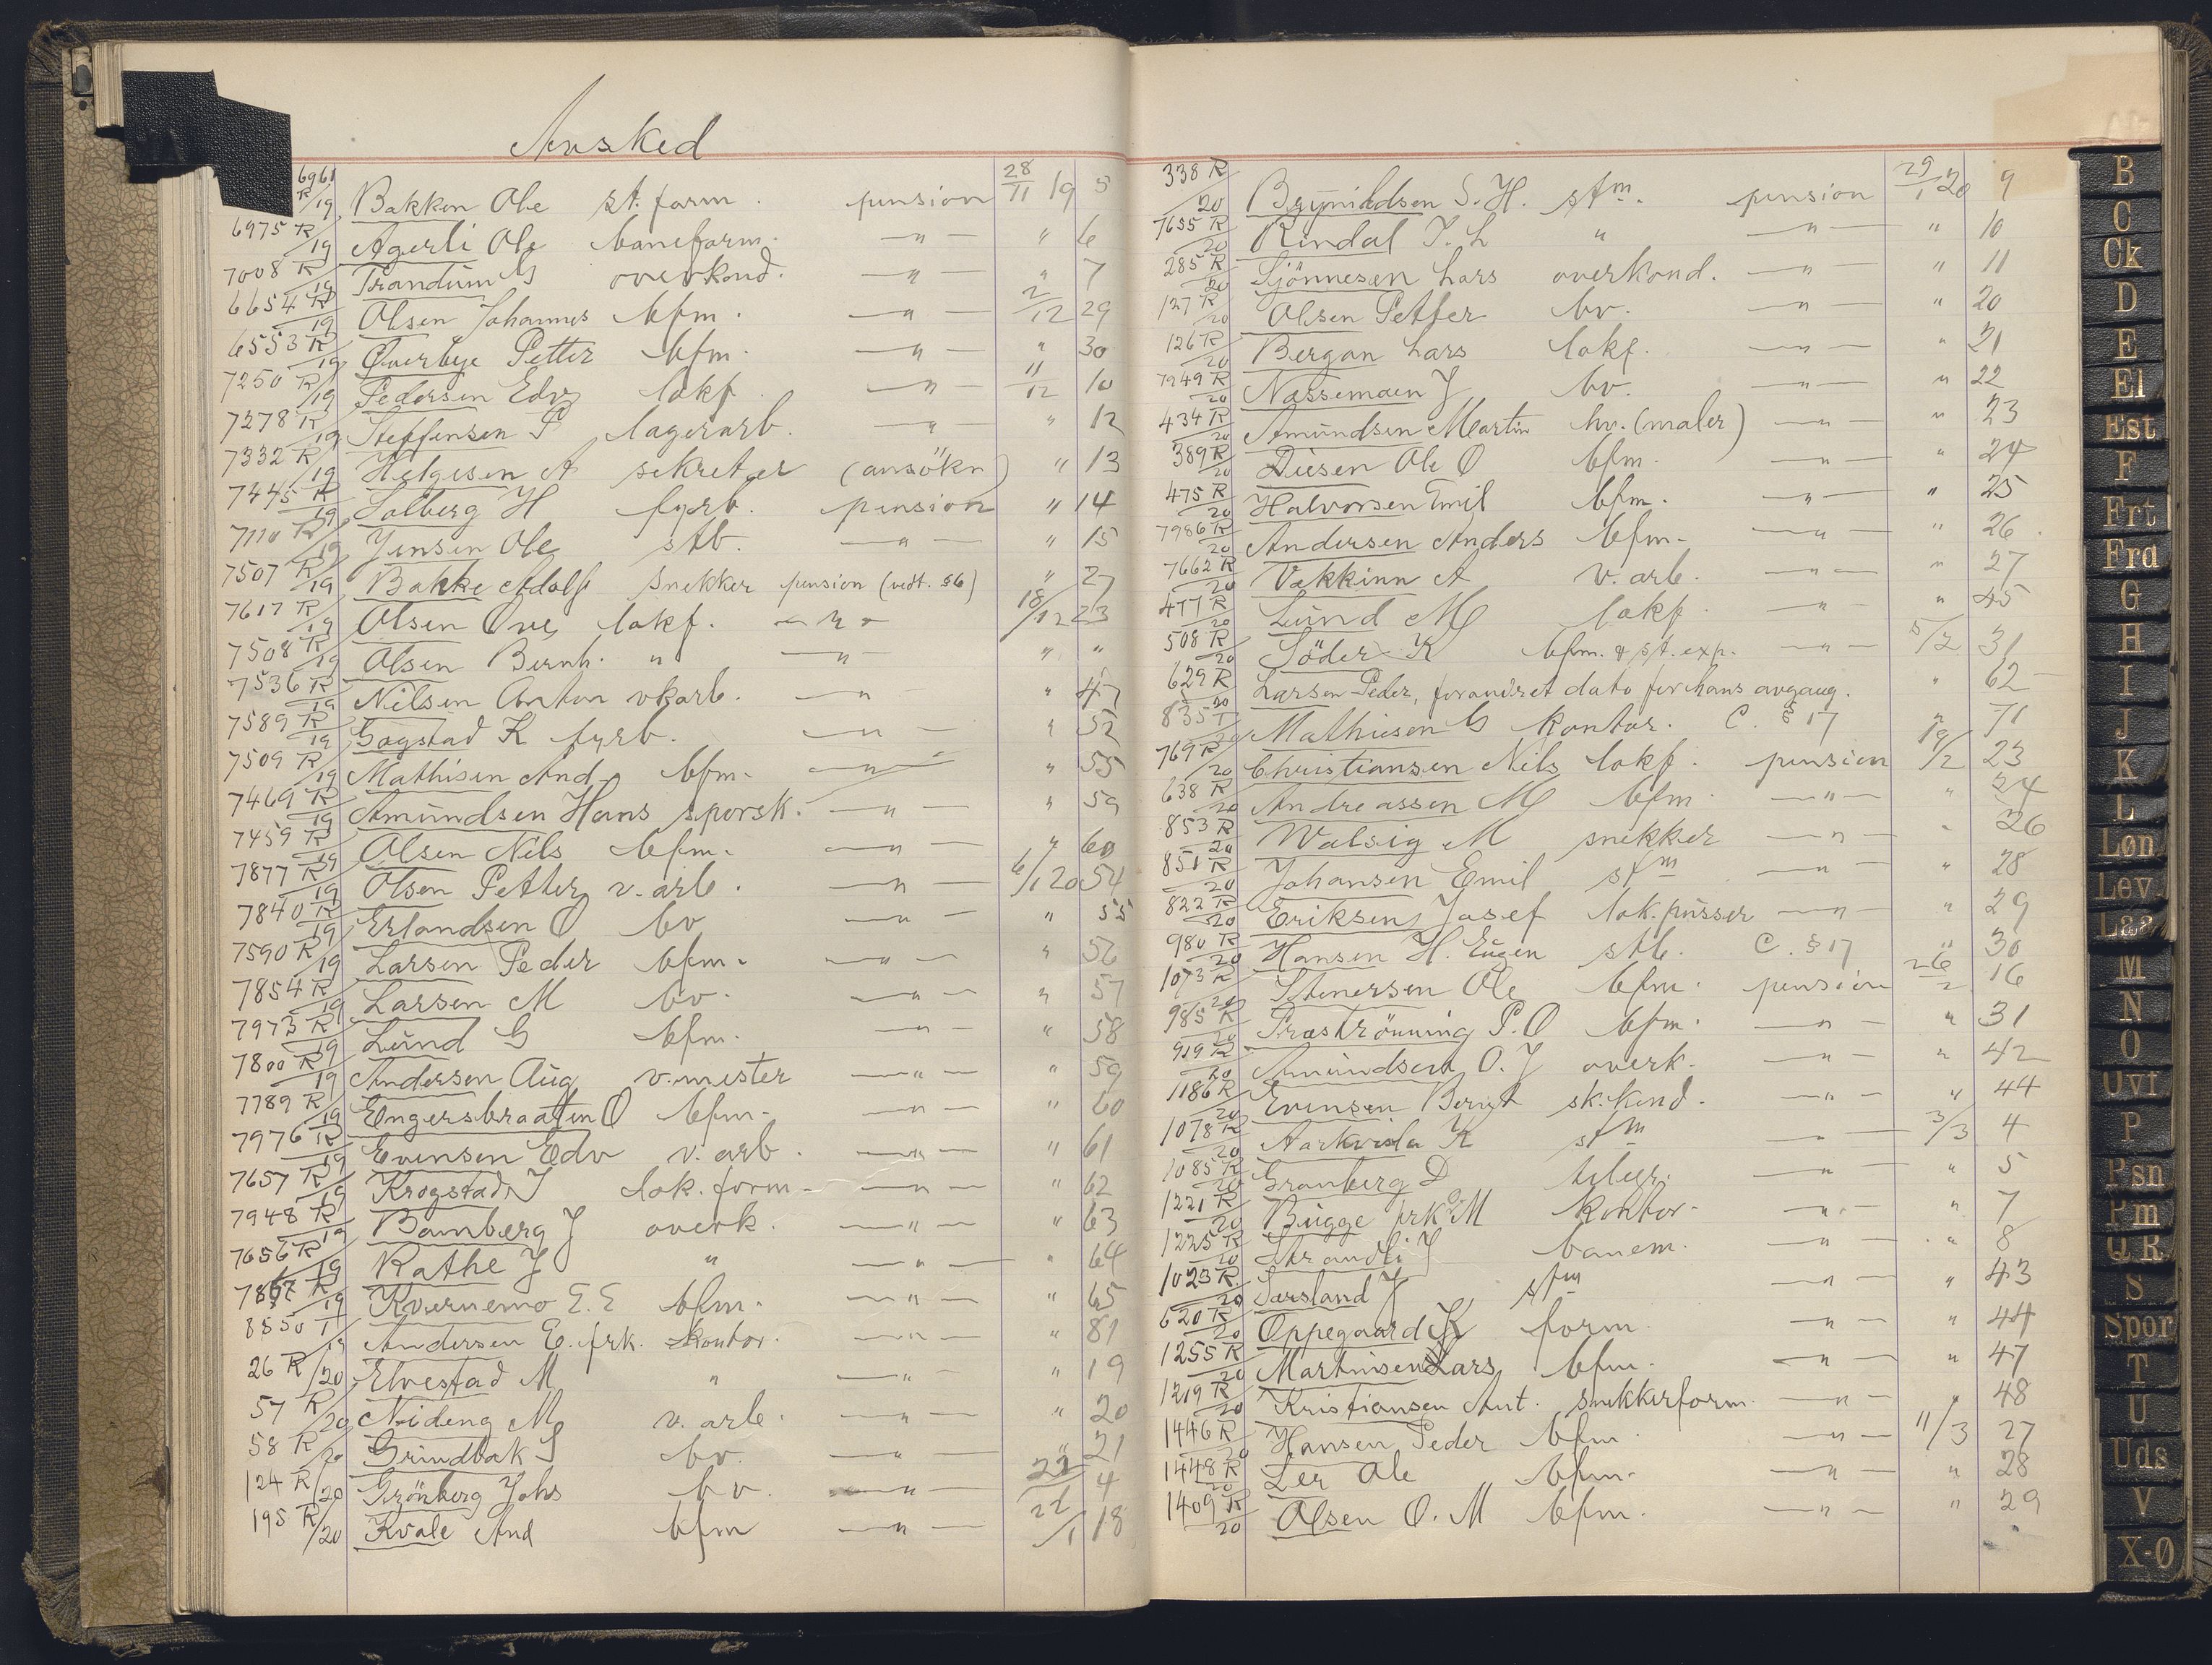 Avsked
6961 R/19 Bakken Ole st. form. pension 28/11 19 5
6975 R/19 Agerli Ole baneform. —"— " 6
7008 R/19 Trandum G overkond. —"— " 7
6654 R/19 Olsen Johannes bfm. —"— 2/12 29
6553 R/19 Øverbye Petter bfm. —"— " 30
7250 R/19 Pedersen Edv lokf. —"— 11/12 10
7278 R/19 Steffensen P lagerarb. —"— " 12
7332 R/19 Helgesen A sekretær (ansökn) " 13
7445 R/19 Solberg H fyrb. pension " 14
7110 R/19 Jensen Ole stb. —"— " 15
7507 R/19 Bakke Adolf snekker pension (vedt. §6) " 27
7617 R/19 Olsen Ove lokf. —"— 18/12 23
7508 R/19 Olsen Bernh. " —"— " "
7536 R/19 Nilsen Anton vkarb. —"— " 47
7589 R/19 Gogstad K fyrb. —"— " 52
7509 R/19 Mathisen And. bfm. —"— " 55
7469 R/19 Amundsen Hans sporsk. —"— " 59
7459 R/19 Olsen Nils bfm. —"— " 60
7877 R/19 Olsen Petter v. arb. —"— 6/1 20 54
7840 R/19 Erlandsen O bv —"— " 55
7590 R/19 Larsen Peder bfm. —"— " 56
7854 R/19 Larsen M bv. —"— " 57
7973 R/19 Lund G bfm. —"— " 58
7800 R/19 Andersen Aug v.mester —"— " 59
7789 R/19 Engersbraaten O bfm. —"— " 60
7976 R/19 Evensen Edv v. arb. —"— " 61
7657 R/19 Krogstad J lok. form. —"— " 62
7948 R/19 Bamberg J overk. —"— " 63
7656 R/19 Rathe J " —"— " 64
7867 R/19 Kvernemo E. E bfm. —"— " 65
8550 T/19 Andersen E. frk. kontor. —"— " 81
26 R/20 Elvestad M " —"— " 19
57 R/20 Nideng M v. arb. —"— " 20
58 R/20 Grindbak S bv. —"— " 21
124 R/20 Grönberg Johs bv. —"— 22/ 4
195 R/20 Kvale And bfm —"— 22/1 18
338 R/20 Brynildsen S. H. stm. pension 29/1 20 9
7655 R/20 Rindal T. L " —"— " 10
285 R/20 Sjönnesen Lars overkond. —"— " 11
127 R/20 Olsen Petter bv. —"— " 20
126 R/20 Bergan Lars lokf. —"— " 21
7949 R/20 Næssemoen J bv. —"— " 22
434 R/20 Amundsen Martin hv. (maler) —"— " 23
389 R/20 Diesen Ole O bfm. —"— " 24
475 R/20 Halvorsen Emil bfm. —"— " 25
7986 R/20 Andersen Anders bfm. —"— " 26
7662 R/20 Vekkinn A v. arb. —"— " 27
477 R/20 Lund M lokf. —"— " 45
508 R/20 Söder K bfm. & st. exp. —"— 5/2 31
629 R/20 Larsen Peder, forandret dato for hans avgang. " 62
835 T/20 Mathiesen G kontor. C. § 17 " 71
769 R/20 Christiansen Nils lokf. pension 19/2 23
638 R/20 Andreassen M bfm. —"— " 24
853 R/20 Walsig M snekker —"— " 26
851 R/20 Johansen Emil stm —"— " 28
822 R/20 Eriksen Josef lok. pusser —"— " 29
980 R/20 Hansen H. Eugen stb. C. § 17 " 30
1073 R/20 Stenersen Ole bfm. pension 26/2 16
985 R/20 Præströnning P. O bfm. —"— " 31
919 R/20 Amundsen O. J overk. —"— " 42
1186 R/20 Evensen Bernt sk. kond. —"— " 44
1078 R/20 Aarkvisla K stm —"— 3/3 4
1085 R/20 Granberg D telegr. —"— " 5
1221 R/20 Bugge frk. M kontor. —"— " 7
1225 R/20 Strandli J banem. —"— " 8
1023 R/20 Sørsland J stm —"— " 43
620 R/20 Oppegaard K form. —"— " 44
1255 R/20 Martinsen Lars bfm. —"— " 47
1219 R/20 Kristiansen Ant. snekkerform. —"— " 48
1446 R/20 Hansen Peder bfm. —"— 11/3 27
1448 R/20 Ler Ole bfm. —"— " 28
1409 R/20 Olsen O. M bfm. —"— " 29
B
C
Ck
D
E
El
Est
F
Frt
Frd
G
H
I
J
K
L
Løn
Lev.
Laa
M
N
O
Ovf
P
Psn
Pm
Q R
S
Spor
T
U
Uds
V
X-Ø